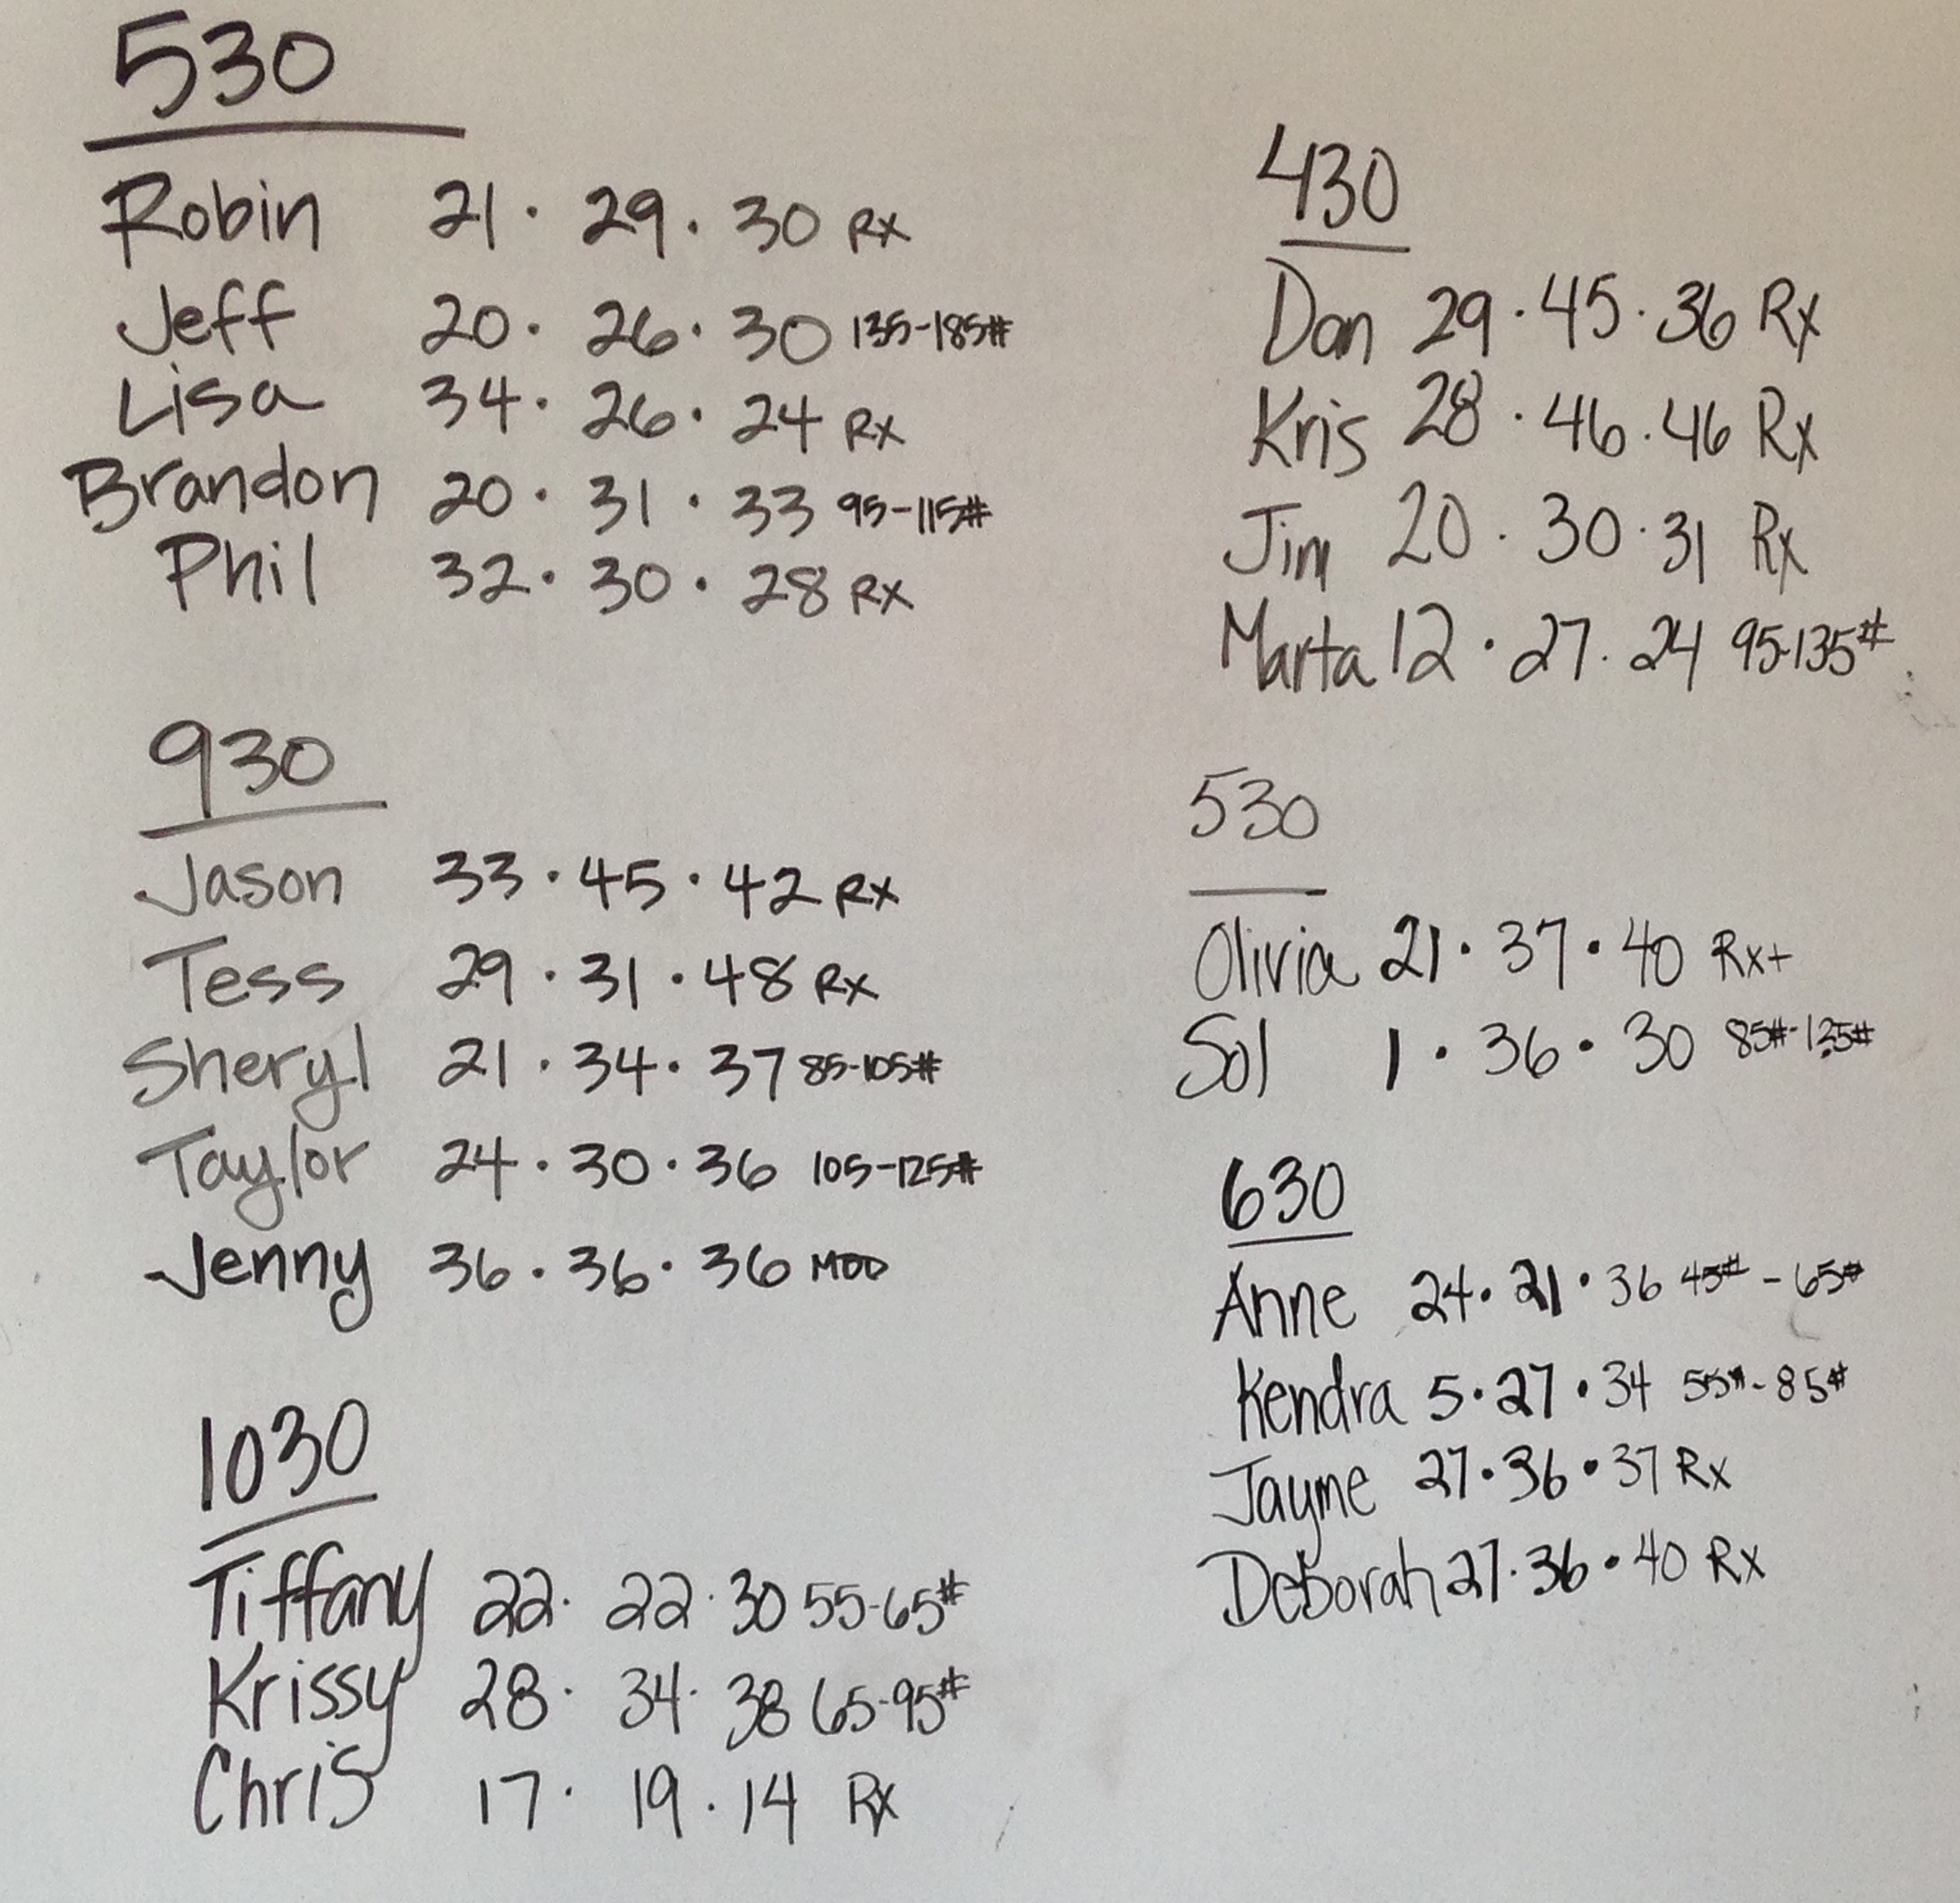 530
Robin 21 · 29 · 30 RX
Jeff 20 · 26 · 30 135-185#
Lisa 34 · 26 · 24 RX
Brandon 20 · 31 · 33 95-115#
Phil 32 · 30 · 28 RX
930
Jason 33 · 45 · 42 RX
Tess 29 · 31 · 48 RX
Sheryl 21 · 34 · 37 85-105#
Taylor 24 · 30 · 36 105-125#
Jenny 36 · 36 · 36 MOD
1030
Tiffany 22 · 22 · 30 55-65#
Krissy 28 · 34 · 38 65-95#
Chris 17 · 19 · 14 Rx
430
Dan 29 · 45 · 36 Rx
Kris 28 · 46 · 46 Rx
Jim 20 · 30 · 31 Rx
Marta 12 · 27 · 24 95-135#
530
Olivia 21 · 37 · 40 Rx+
Sol 1 · 36 · 30 85#-135#
630
Anne 24 · 21 · 36 45# - 65#
Kendra 5 · 27 · 34 55# - 85#
Jayme 27 · 36 · 37 Rx
Deborah 27 · 36 · 40 Rx